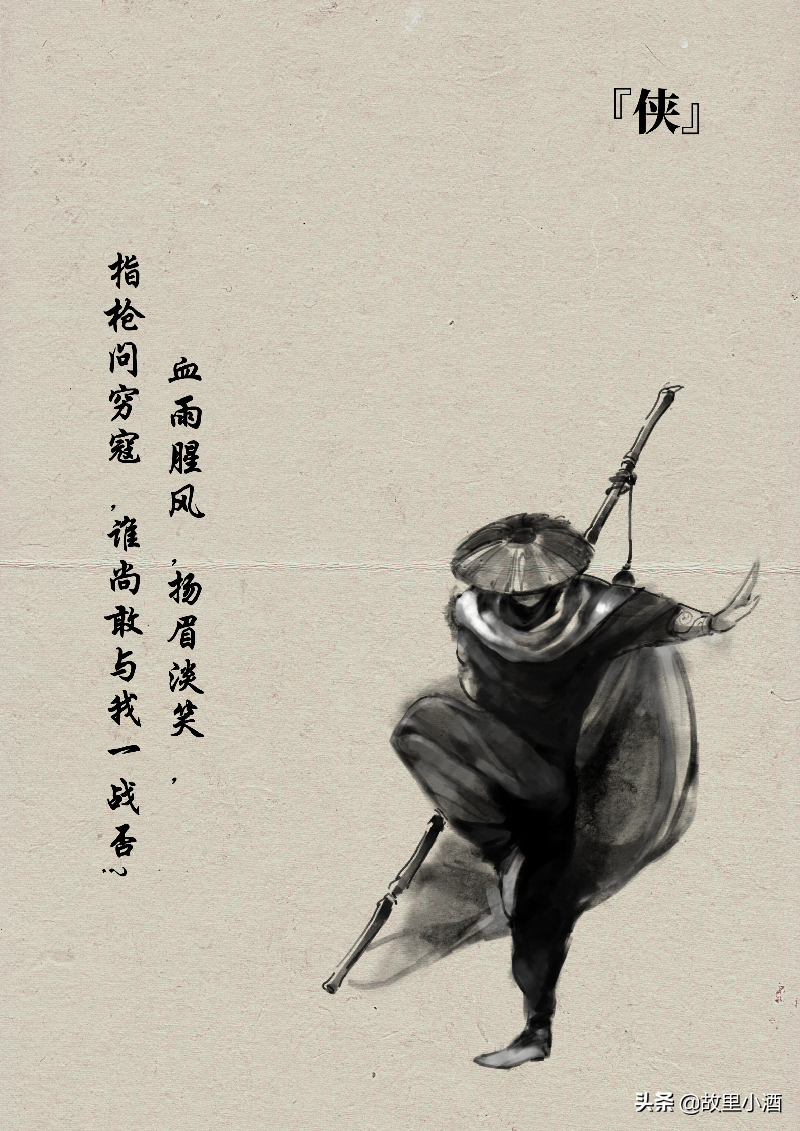 『侠』
血雨腥风，扬眉淡笑，
指枪问穷寇，谁尚敢与我一战否
头条 @故里小酒